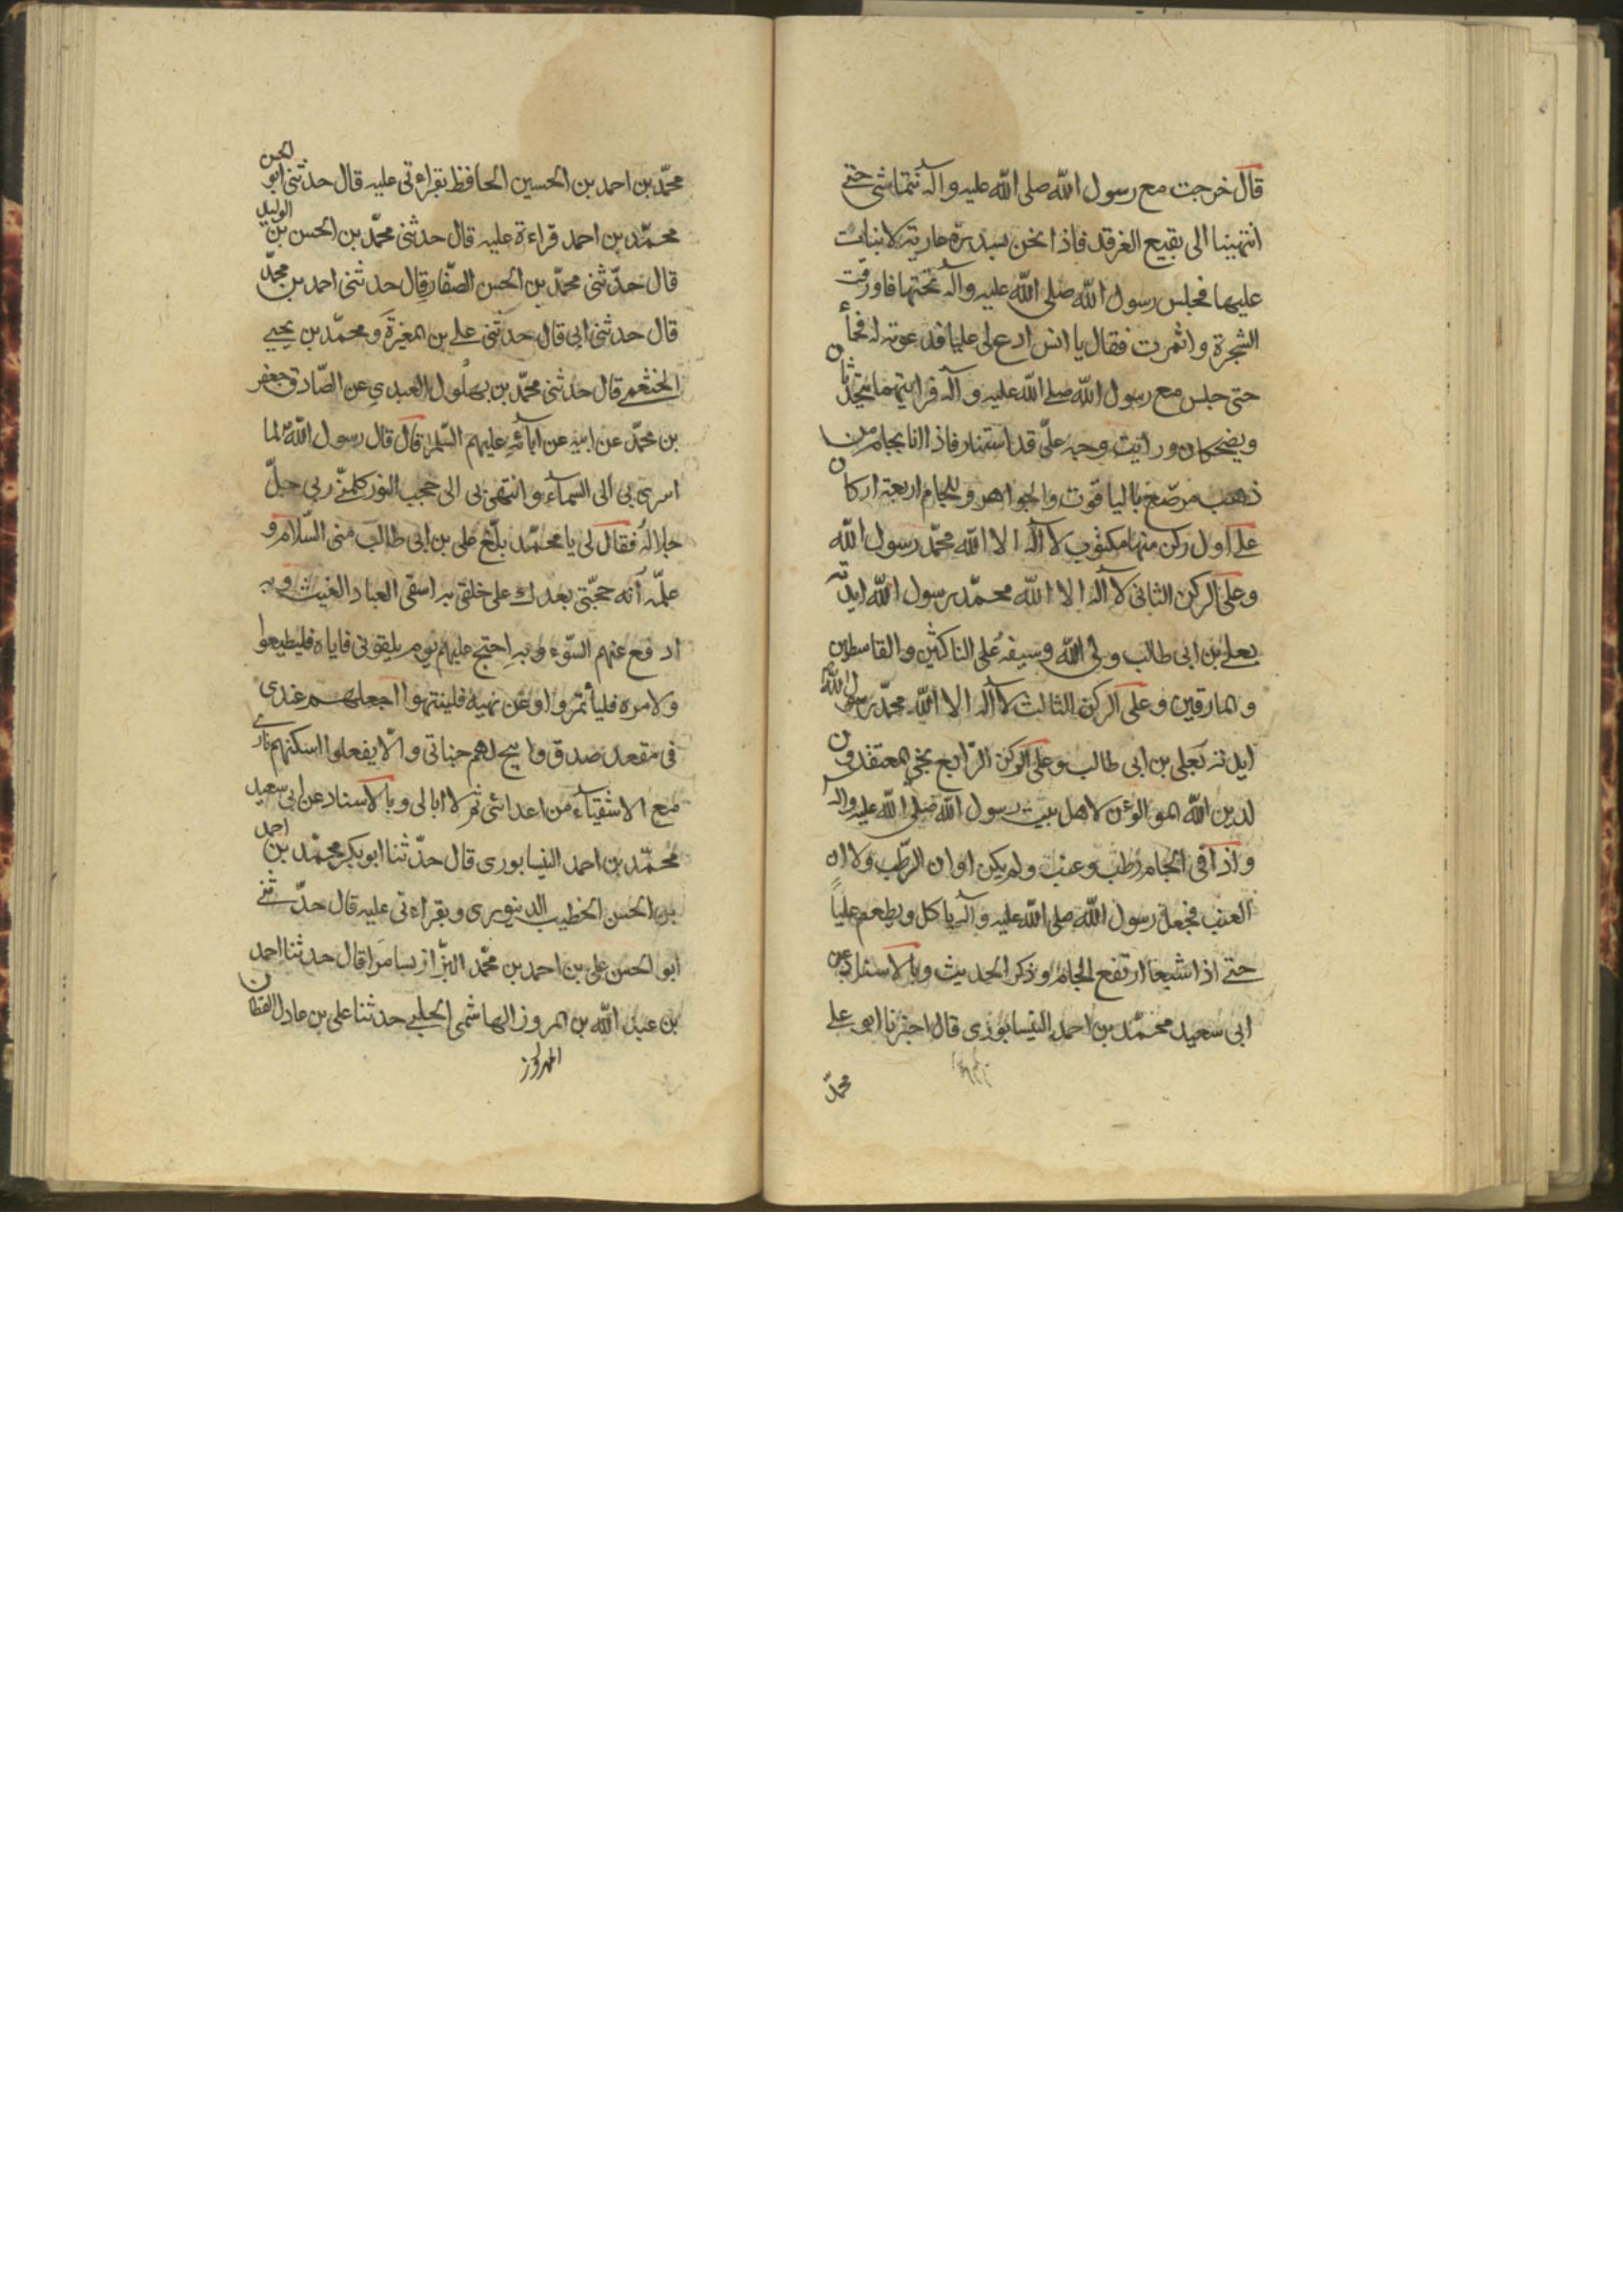 قال خرجت مع رسول الله صلى الله عليه وآله نتماشى حتى
انتهينا الى بقيع الغرقد فاذا نحن بسدرة عارية لا نبات
عليها فجلس رسول الله صلى الله عليه وآله تحتها فاورقت
الشجرة واثمرت فقال يا انس ادع لى عليا فدعوته له فجاء
حتى جلس مع رسول الله صلى الله عليه وآله فرايتهما يتحدثان
ويضحكان ورأيت وجه علىّ قد استنار فاذا انا بجام من
ذهب مرصّع باليا قوت والجواهر وللجام اربعة اركان
على اول ركن منها مكتوب لا آله الا الله محمّد رسول الله
وعلى الركن الثانى لا آله الا الله محمّد رسول الله ايدته
بعلى بن ابى طالب ولى الله وسيفه على الناكثين والقاسطين
والمارقين وعلى الركن الثالث لا آله الا الله محمّد رسول الله
ايدته بعلى بن ابى طالب وعلى الركن الرّابع نجى المعتقدون
لدين الله الموالون لاهل بيت رسول الله صلى الله عليه وآله
واذا فى الجام رطب وعنب ولم يكن اوان الرّطب ولا اوان
العنب فجعل رسول الله صلى الله عليه وآله ياكل ويطعم علياً
حتى اذا شبعا ارتفع الجام وذكر الحديث وبالاسناد عن
ابى سعيد محمّد بن احمد النيسابورى قال اخبرنا ابو على
محمّد
محمّد بن احمد بن الحسين الحافظ بقراءتى عليه قال حدثنى ابو الحسن
محمّد بن احمد قراءة عليه قال حدثنى محمّد بن الحسن بن الوليد
قال حدّثنى محمّد بن الحسن الصفّار قال حدثنى احمد بن محمّد
قال حدثنى ابى قال حدثنى على بن المغيرة ومحمّد بن يحيى
الخثعمى قال حدثنى محمّد بن بهلول العبدى عن الصّادق جعفر
بن محمّد عن ابيه عن آبائه عليهم السّلم قال قال رسول الله لما
اسرى بى الى السماء وانتهى بى الى حجب النور كلمنى ربى جلّ
جلاله فقال لى يا محمّد بلّغ على بن ابى طالب منى السّلام و
علّمه أنه حجّتى بعدك على خلقى به اسقى العباد الغيث وبه
ادفع عنهم السّوء وبه احتج عليهم يوم يلقونى فاياه فليطيعوا
ولامره فليأتمروا وعن نهيه فلينتهوا اجعلهم عندى
فى مقعد صدق وابيح لهم جناتى والّا يفعلوا اسكنتهم نارى
مع الاشقياء من اعدائى ثم لا ابالى وبالاسناد عن ابى سعيد
محمّد بن احمد النيسابورى قال حدّثنا ابوبكر محمّد بن احمد
بن الحسن الخطيب الدينورى وبقراءتى عليه قال حدّثنى
ابو الحسن على بن احمد بن محمّد البزّاز بسامرا قال حدثنا احمد
بن عبد الله بن المروز الهاشمى الحلبى حدثنا على بن عادل القطان